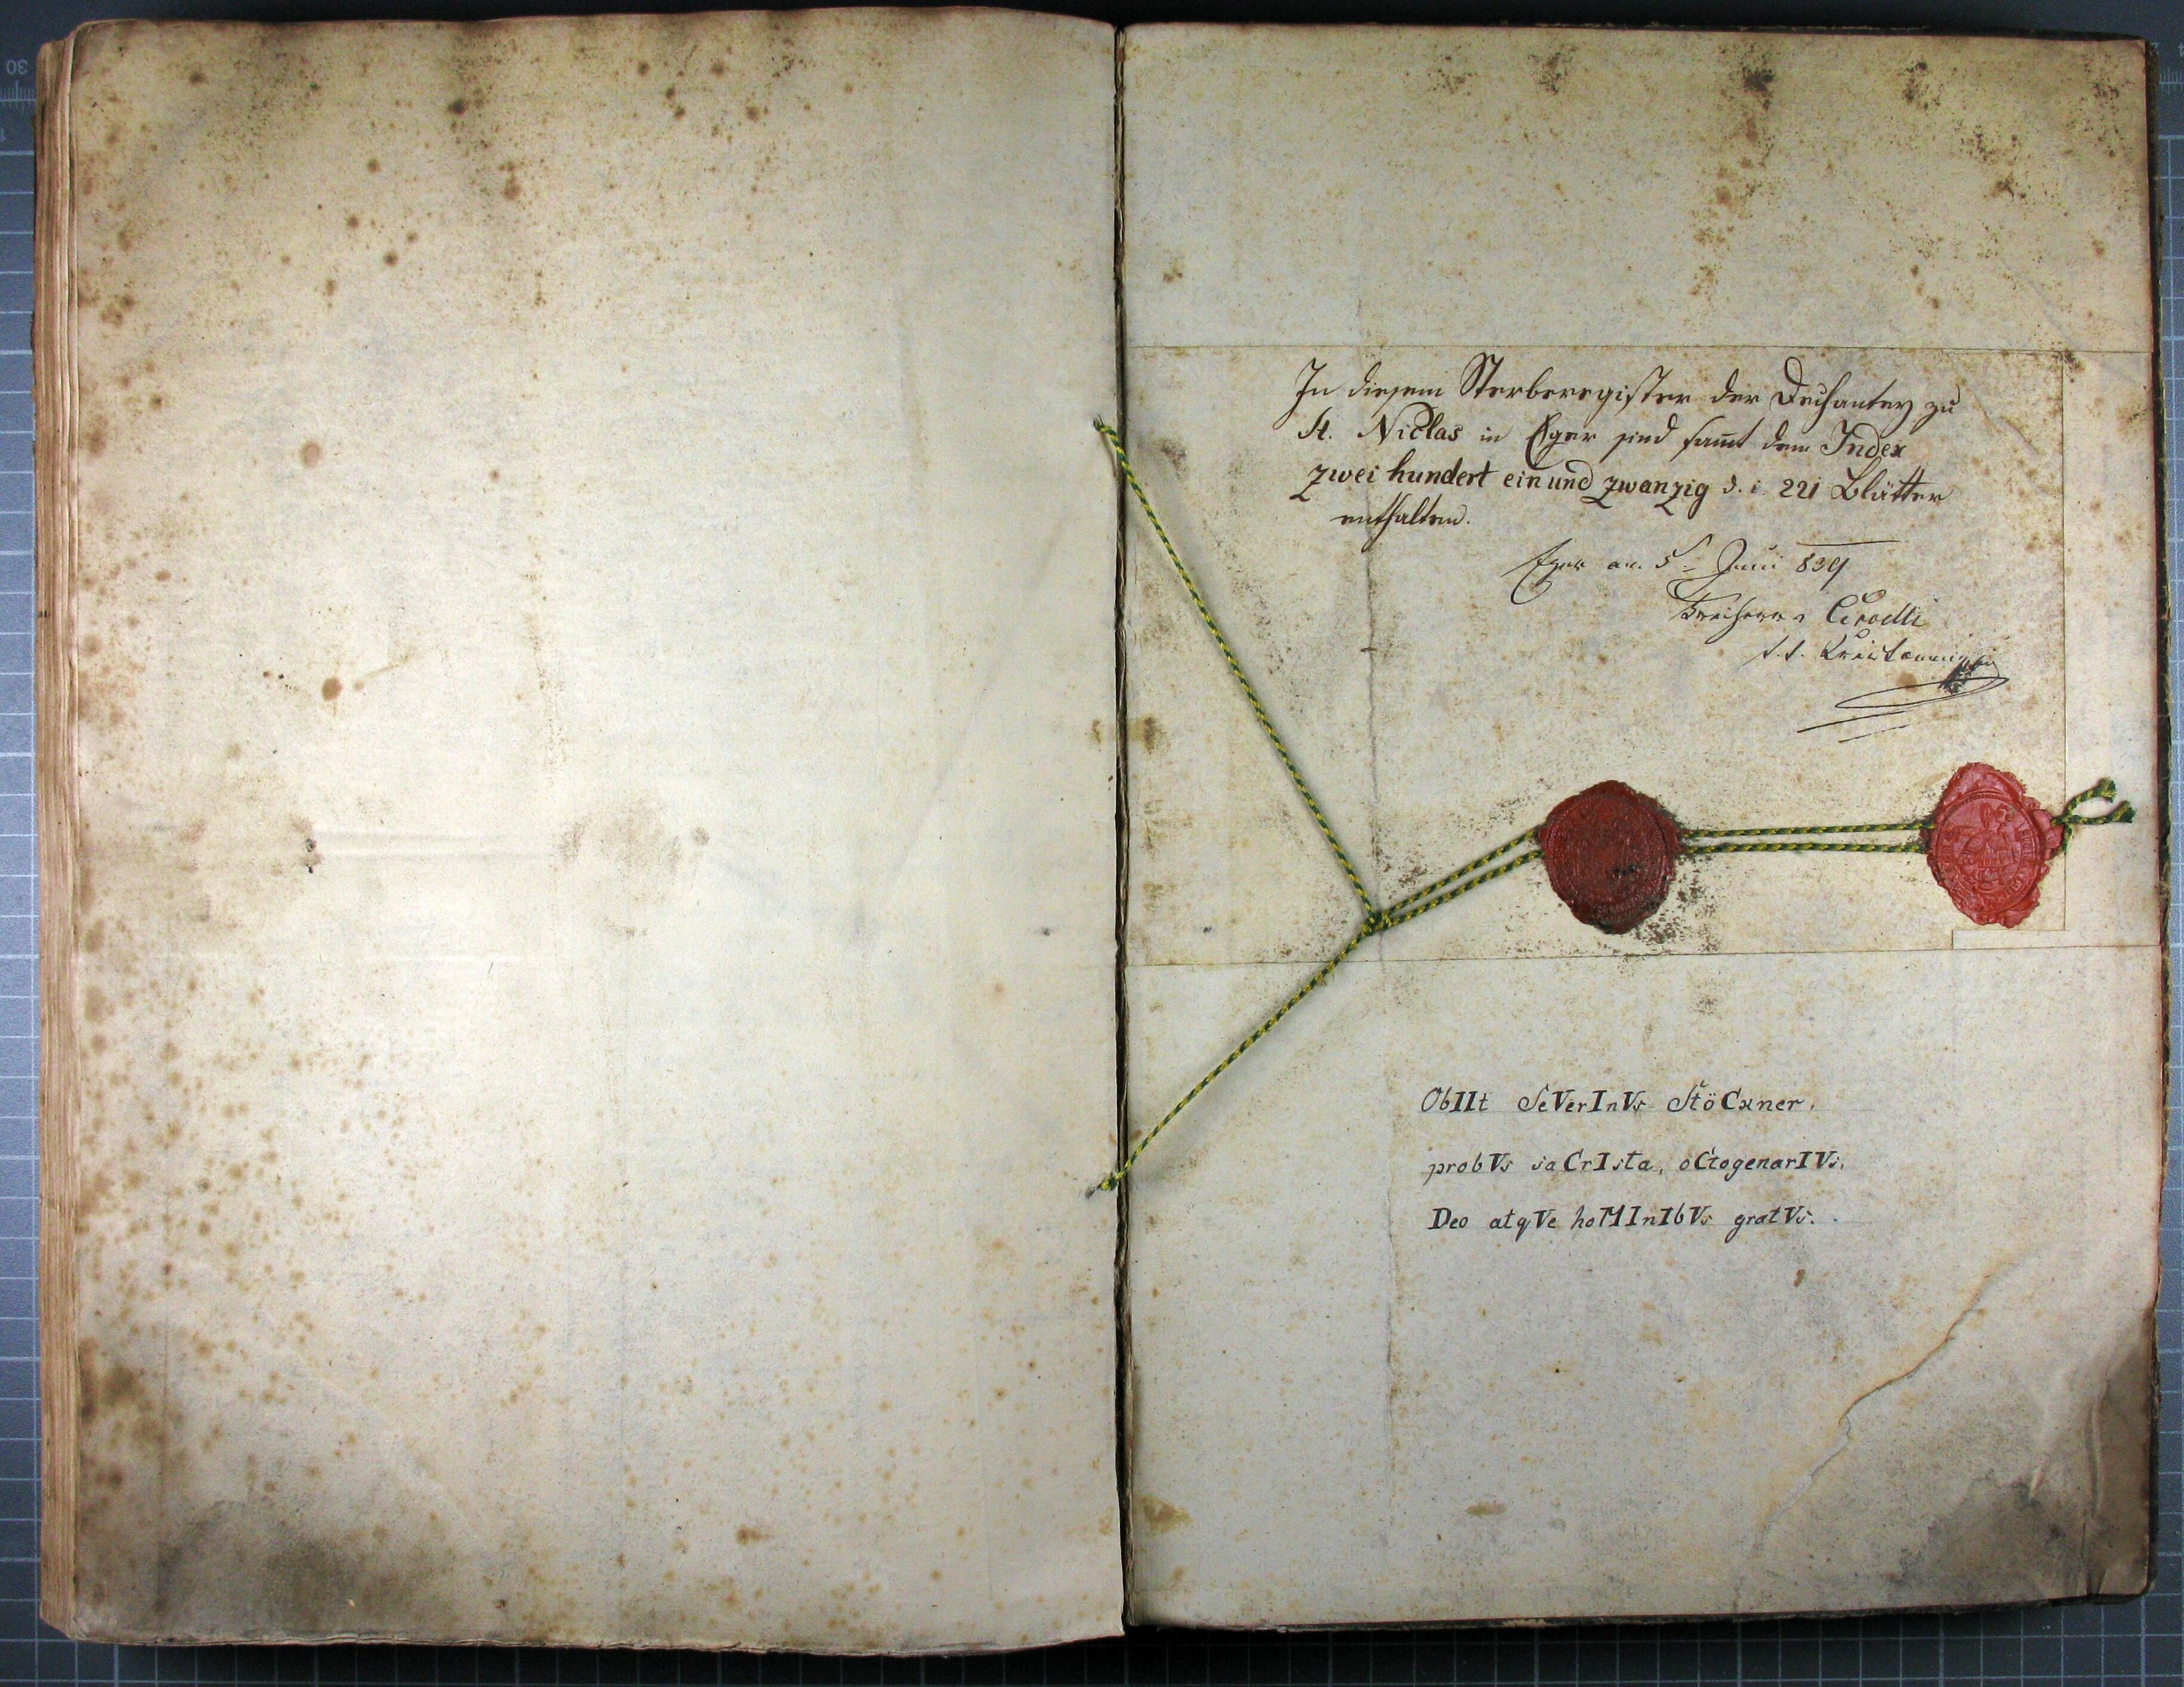 In diesem Sterberegister der Dechantey zu
St. Niclas in Eger sind sammt dem Index
zwei hundert ein und zwanzig d. i. 221 Blätter
enthalten.
Eger am 5t Juni 839
Freiherr v
k. k.
ObIIt SeVerInVs StöCkner.
probVs saCrIsta, oCtogenarIVs.
Deo atqVe hoMInIbVs gratVs.
30